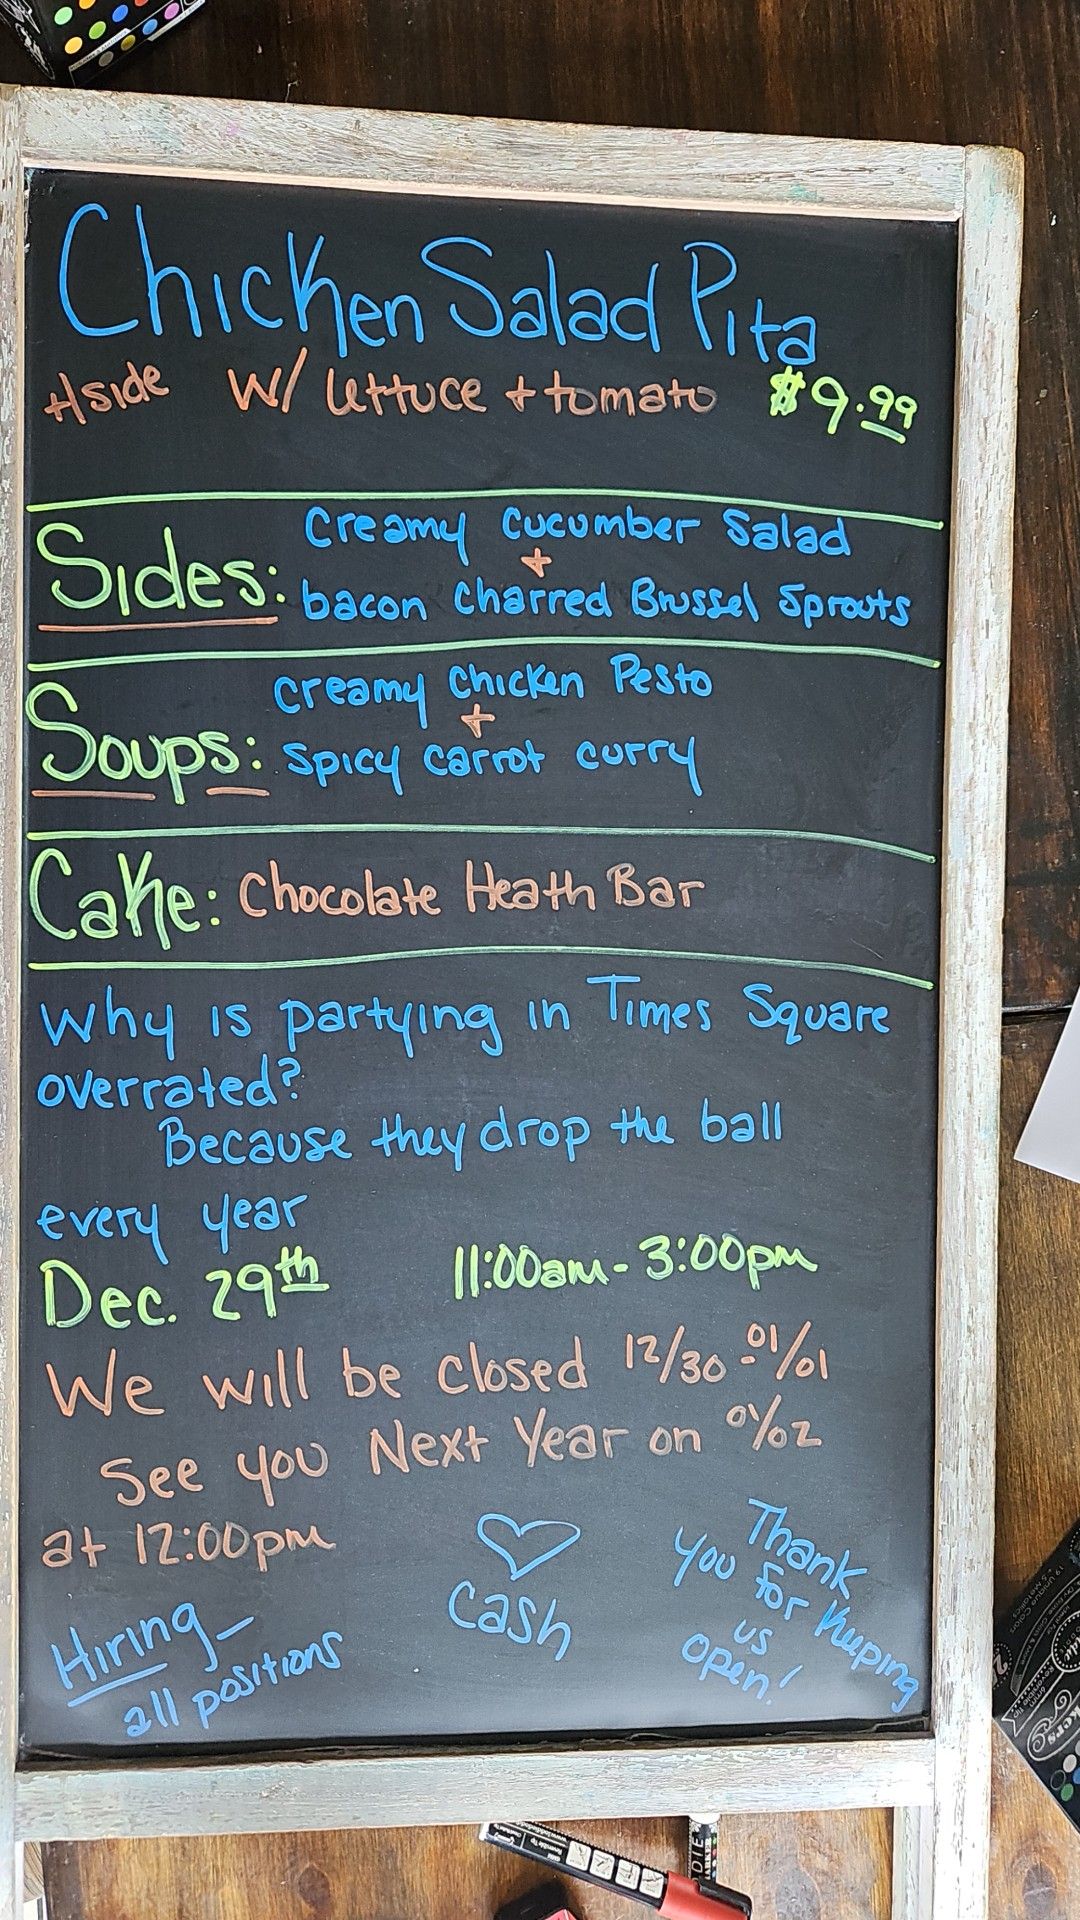 Chicken Salad Pita
+/side w/ lettuce + tomato $9.99
Sides: Creamy Cucumber Salad
+
bacon Charred Brussel Sprouts
Soups: Creamy Chicken Pesto
+
Spicy carrot curry
Cake: Chocolate Heath Bar
Why is partying in Times Square
overrated?
Because they drop the ball
every year
Dec. 29th 11:00am - 3:00pm
We will be closed 12/30 - 01/01
See you Next Year on 01/02
at 12:00pm
Hiring -
all positions
Cash
Thank
you for Keeping
us
open!